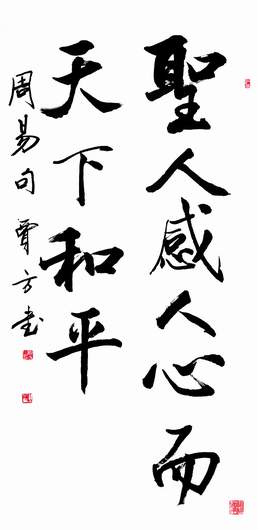 聖人感人心而
天下和平
周易句 賈方書